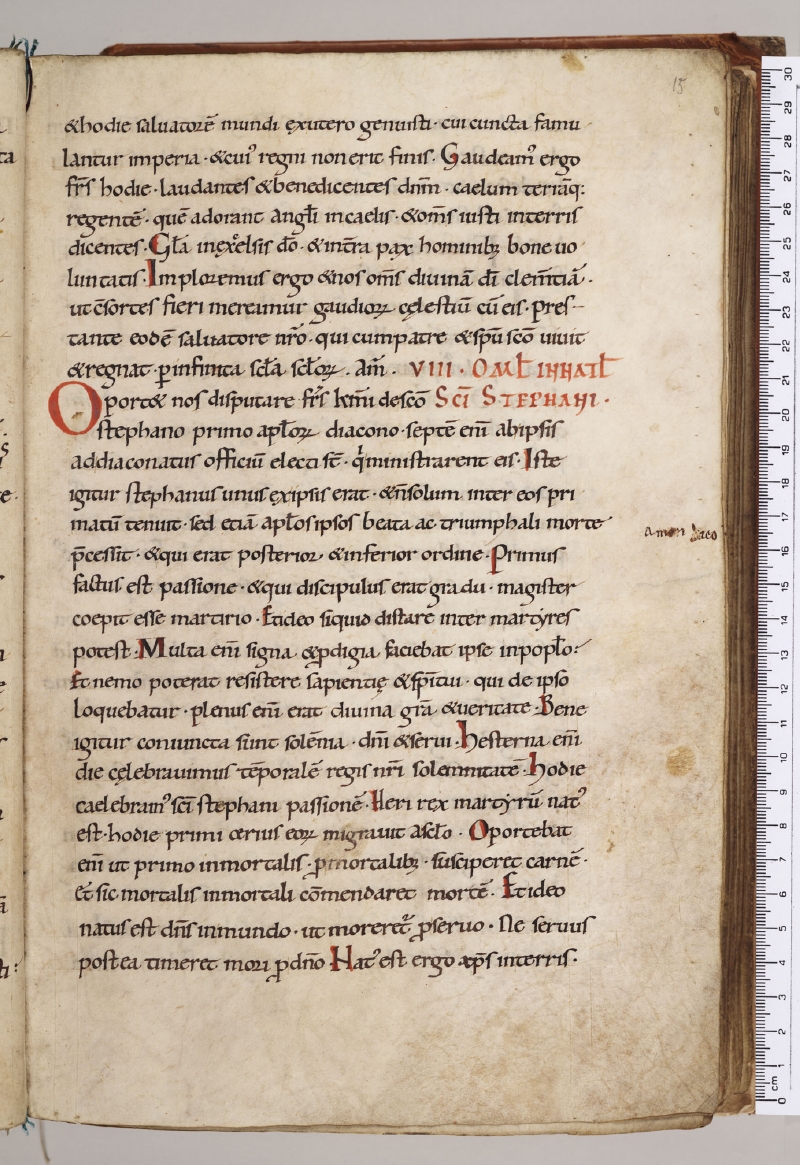 15
&hodie saluatorē mundi ęxutero genuisti · cui cuncta famu
lantur imperia · &cui᾽ regni non erit finis · Gaudeam᾽ ergo
fr̄s hodie · laudantes &benedicentes dn̄m · caelum terrāq:
regentē · quē adorant angłi incaelis · &om̄s iusti interris
dicentes · Gła inęxc̄elsis dō · &intr̄a pax hominibꝫ bone uo
luntatis · Imploremus ergo &nos om̄s diuinā dī clem̄tiā ·
ut c̄sortes fieri mereamur gaudioꝝ cęlestiū cū eis · pres-
tante eodē saluatore nr̄o · qui cumpatre &sp̄u sc̄o uiuit
&regnat · ꝑ infinita scła scłoꝝ . am̄ . VIII · OMŁ IN NAŤ
Oport& nos disputare fr̄s km̄i desc̄o SC̄I STEPHANI ·
stephano primo apłoꝝ diacono · septē eni᷒ abipsis
addiaconatus officiū electi sī · q᷒ministrarent eis · Iste
igitur stephanus unus ęxipsis erat · &n̄solum inter eos pri
matū tenuit · sed etiā apłos ipsos beata ac triumphali morte
p̄cessit · &qui erat posterior &inferior ordine · Primus
factus est passione · &qui discipulus erat gradu · magister
coepit esse martirio · Et ideo siquid distare inter martyres
potest · Multa eni᷒ signa &ꝓdigia faciebat ipse inpopło:
Et nemo poterat resistere sapientię &sp̄itui · qui de ipso
loquebatur · plenus eni᷒ erat diuina gr̄a &ueritate · Bene
igitur coniuncta sunt solēnia · dn̄i &serui · hesterna eni᷒
die cęlebrauimus tēporalē regis nr̄i solemnitatē · hodie
caelebram᾽ sc̄i stephani passionē · Heri rex martyrū nat᾽
est · hodie primicerius eoꝝ migrauit ascło · Oportebat
eni᷒ ut primo inmortalis · ꝓmortalibꝫ · susciperet carnē ·
et sic mortalis inmortali cōmendaret mortē · Et ideo
natus est dn̄s inmundo · ut moreret᷒ ꝓseruo · Ne seruus
postea timeret mori ꝓdn̄o · Nat᾽ est ergo xp̄s interris ·